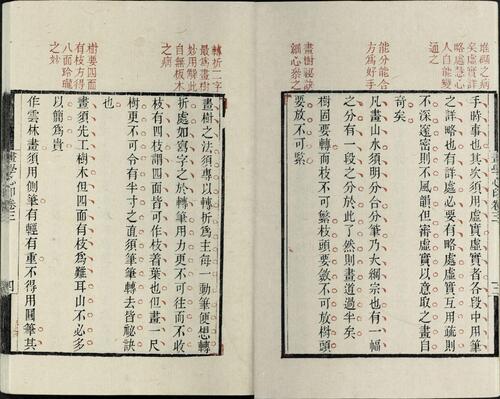 堆砌之病
矣虛實詳
略處慧心
人自能變
通之
能分能合
方為好手
畫樹祕訣
細心參之
手時事也其次須用虛實虛實者各段中用筆
之詳略也有詳處必要有略處虛實互用疏則
不深邃密則不風韻但審虛實以意取之畫自
奇矣
凡畫山水須明分合分筆乃大綱宗也有一幅
之分有一段之分於此了然則畫道過半矣
樹固要轉而枝不可繁枝頭要斂不可放樹頭
要放不可緊
轉折二字
最為畫樹
妙用解此
自無板木
之病
樹要四面
有枝方得
八面玲瓏
之妙
畫樹之法須專以轉折為主每一動筆便想轉
折處如寫字之於轉筆用力更不可往而不收
枝有四枝謂四面皆可作枝着葉也但畫一尺
樹更不可令有半寸之直須筆筆轉去皆祕訣
也
畫須先工樹木但四面有枝為難耳山不必多
以簡為貴
作雲林畫須用側筆有輕有重不得用圓筆其
畫學心印 卷三
四